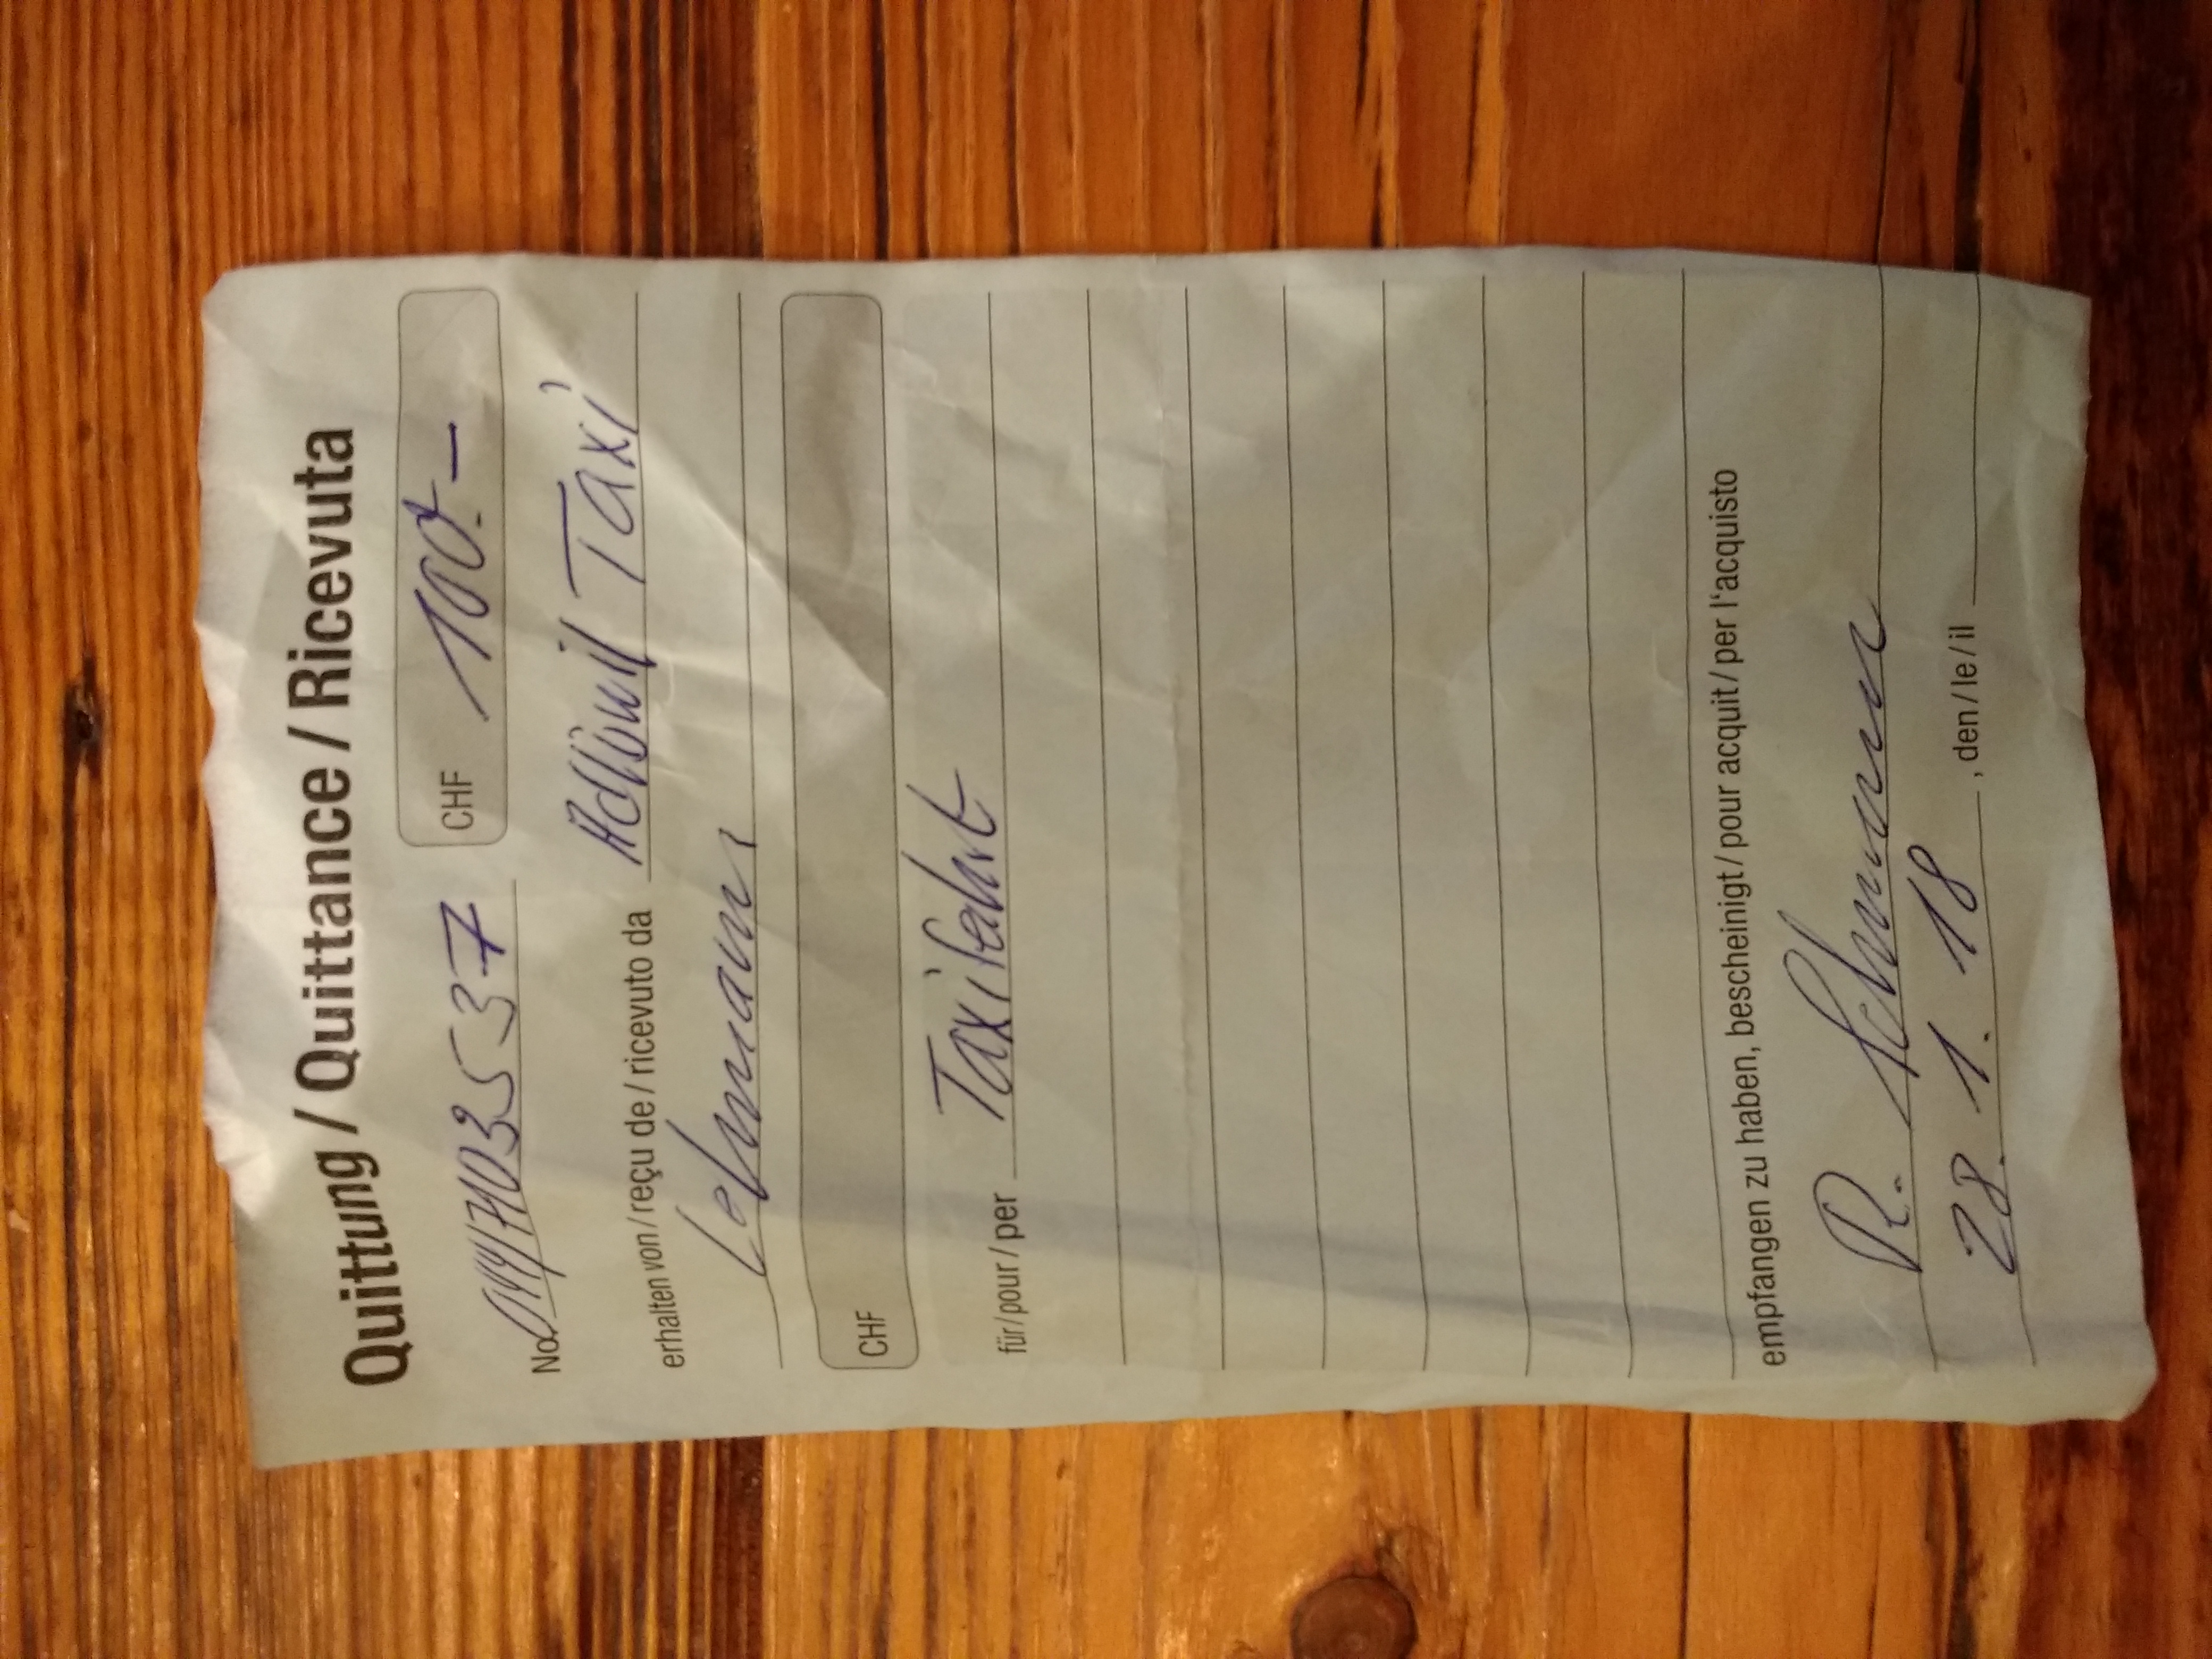 Quittung / Quittance / Ricevuta
No. 044/7103537 CHF 100.-
erhalten von / reçu de / ricevuto da Adlswil Taxi
Lehmann
CHF
für / pour / per Taxifahrt
empfangen zu haben, bescheinigt / pour acquit / per l'acquisto
R. Lehmann
28. 1. 18 , den / le / il